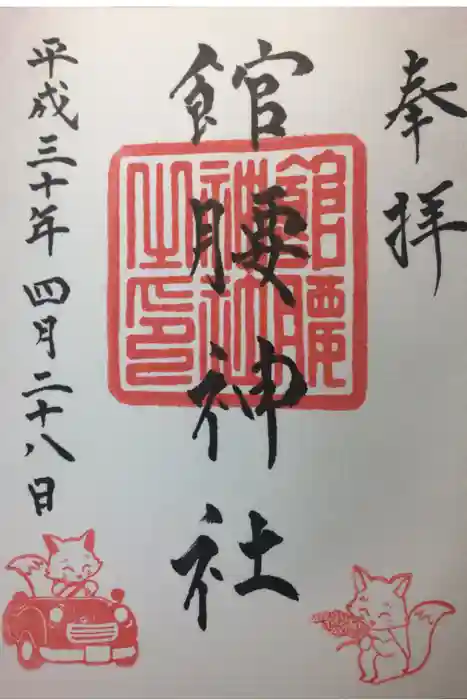 奉拝
館腰神社
館腰神社之印
平成三十年四月二十八日